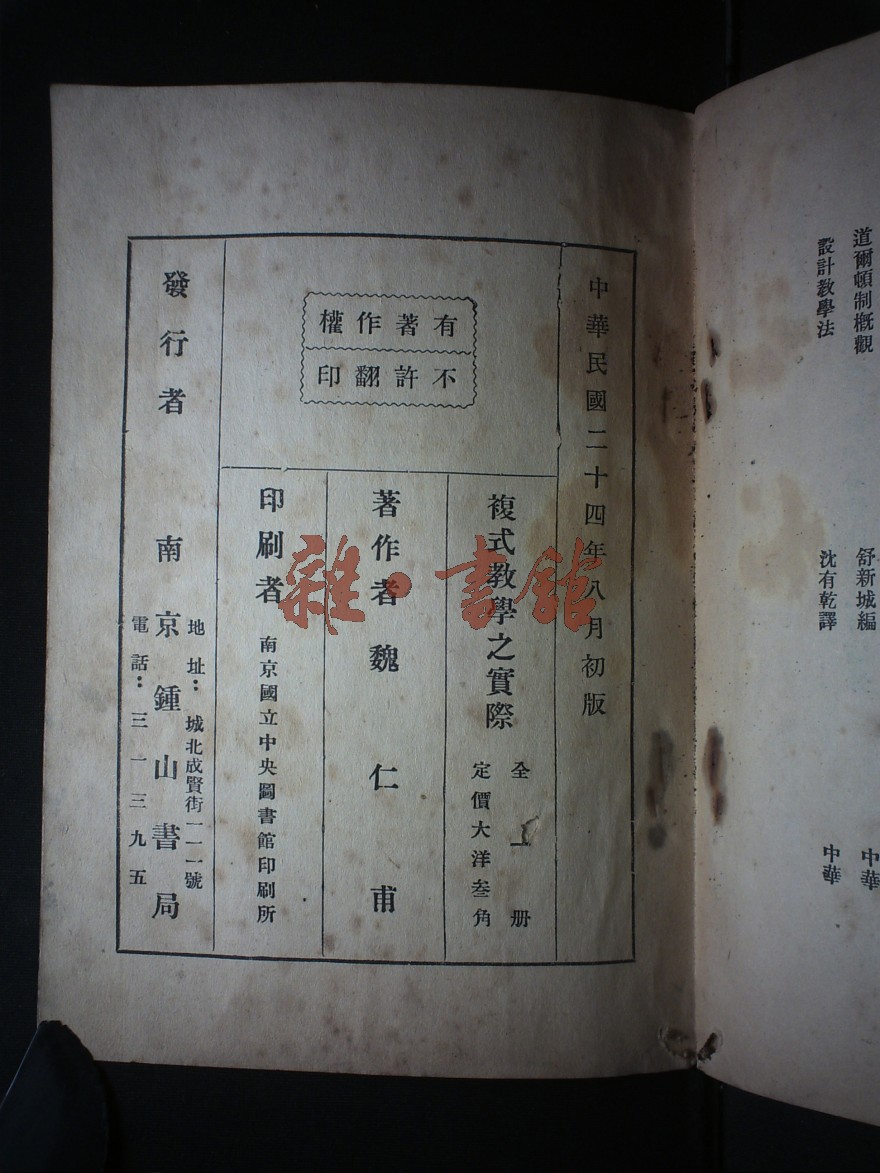 道爾頓制概觀　舒新城編　中華
設計教學法　沈有乾譯　中華
中華民國二十四年八月初版
有著作權
不許翻印
複式教學之實際
全一册
定價大洋叁角
著作者 魏仁甫
印刷者 南京國立中央圖書館印刷所
發行者 南京鍾山書局
地址：城北成賢街一一一號
電話：三一三九五
雜·書館